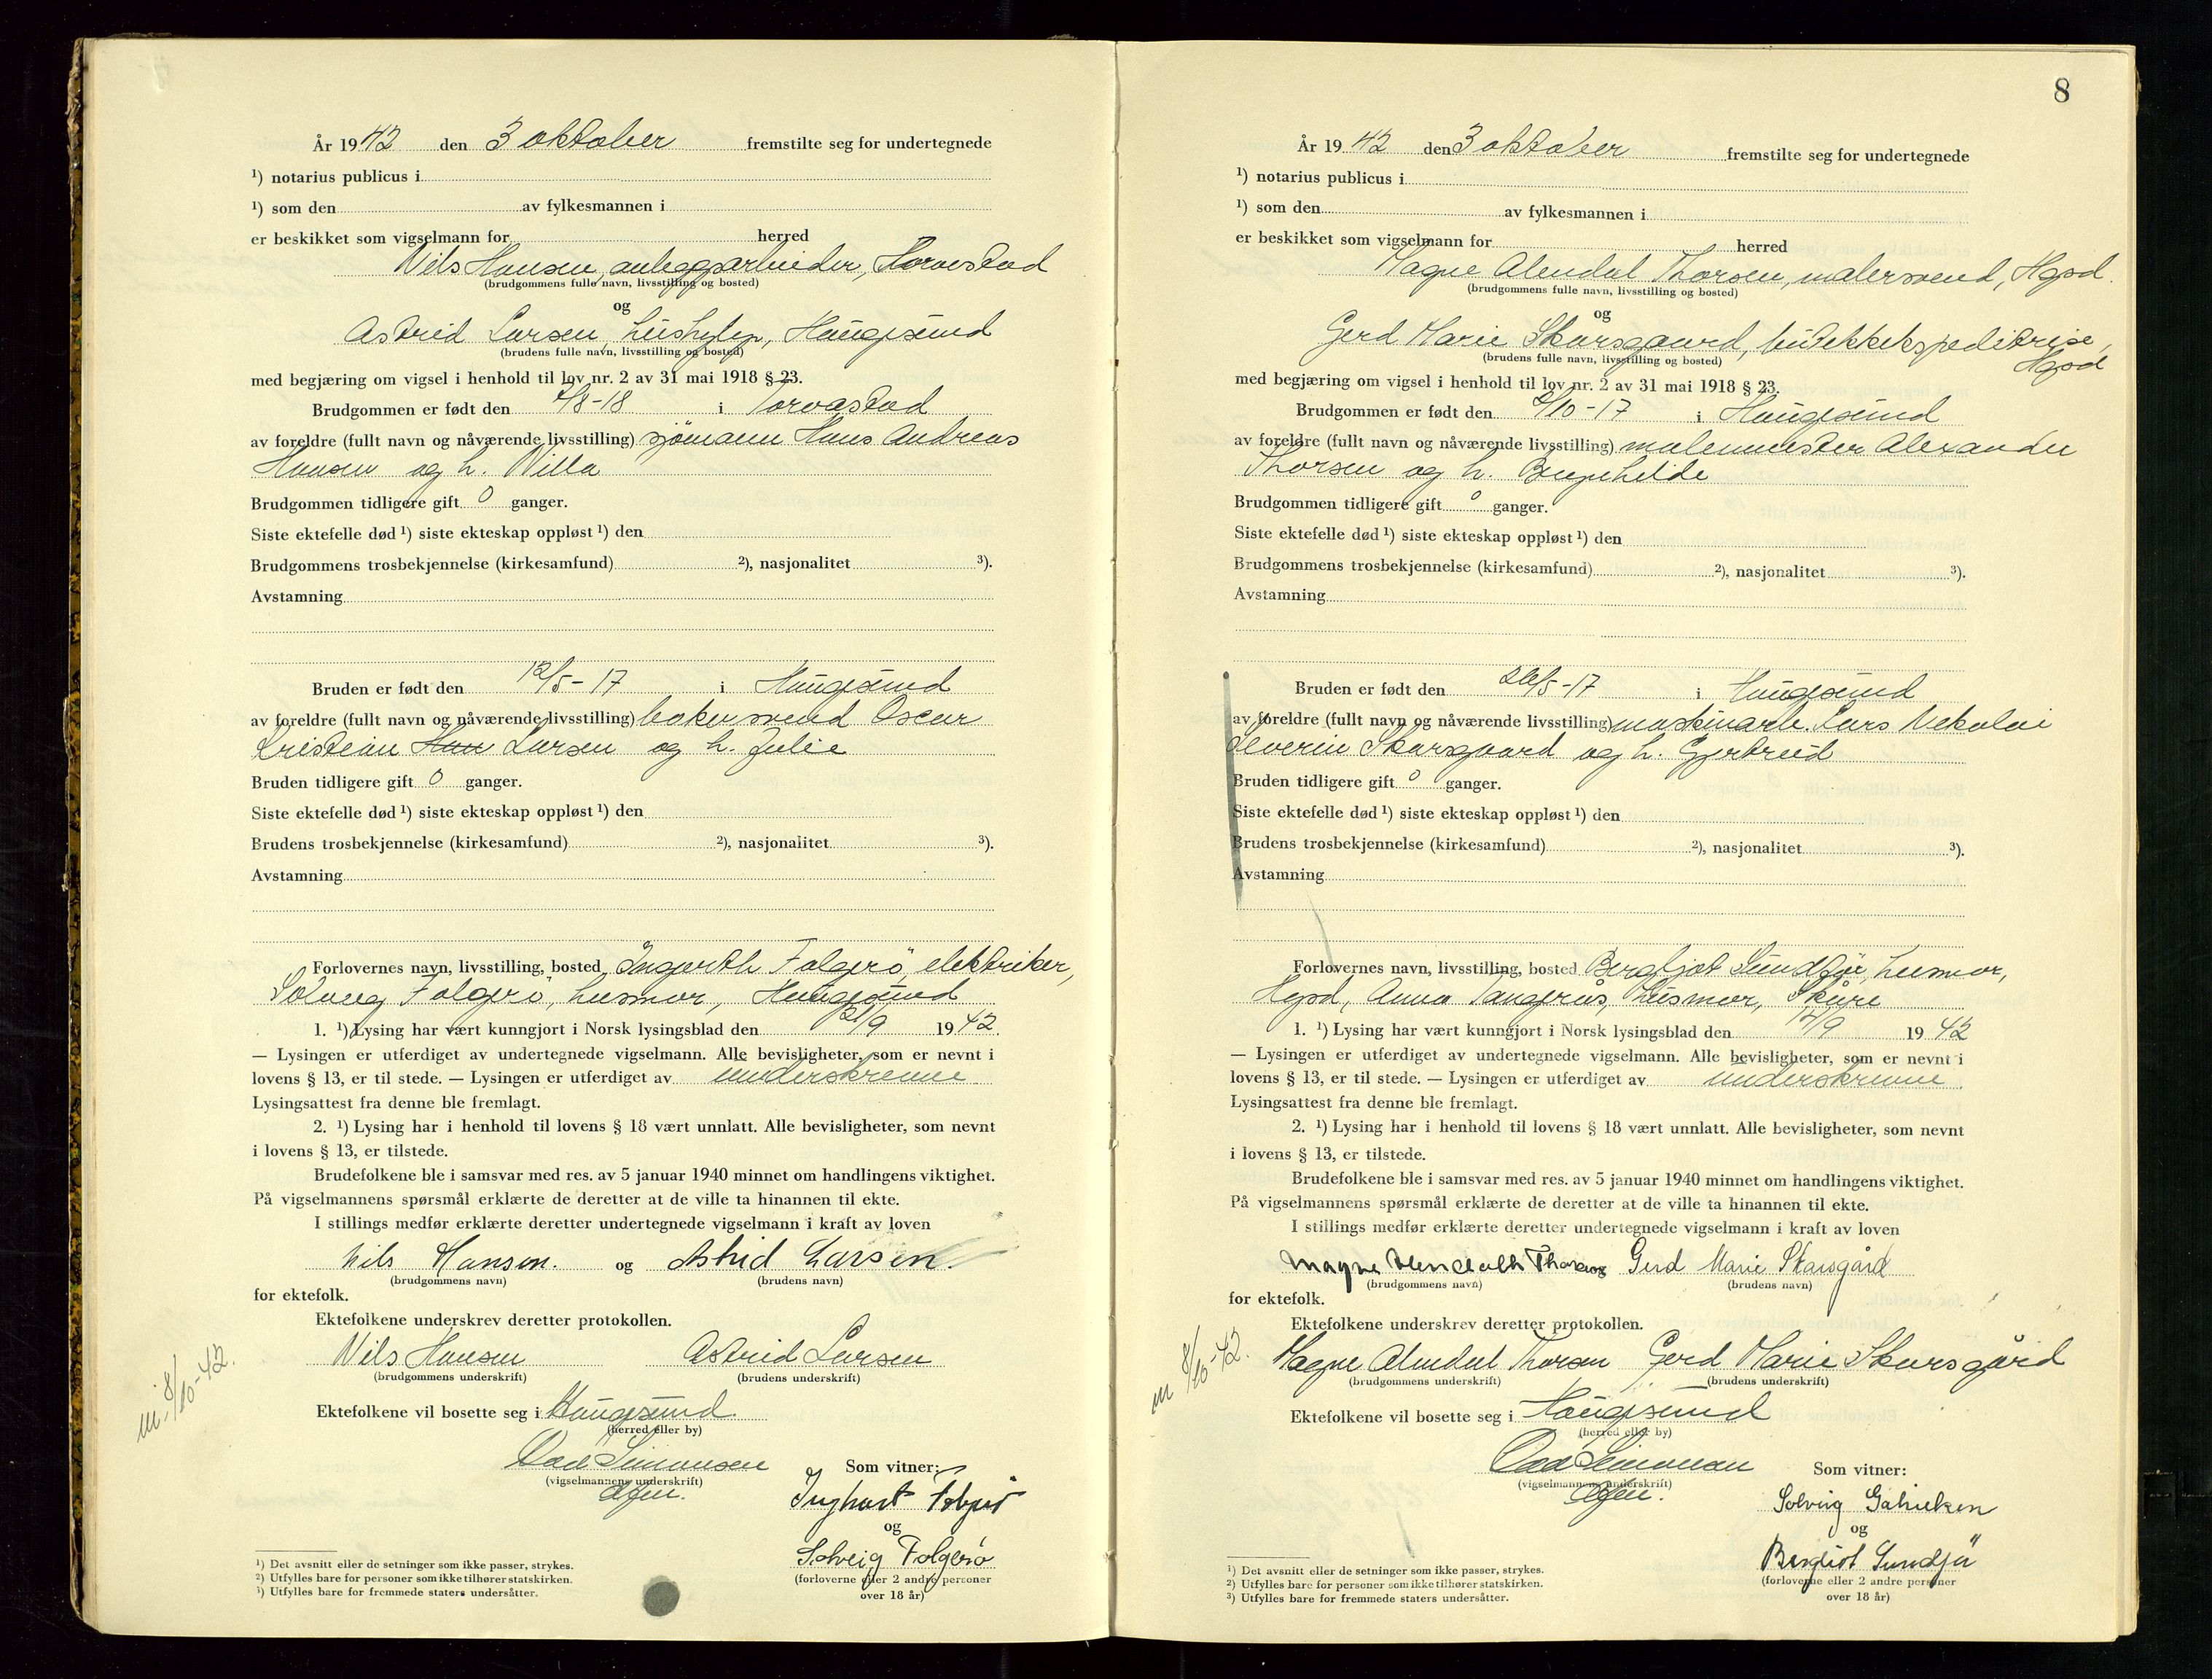 År 1942 den 3 oktober fremstilte seg for undertegnede
¹) notarius publicus i
¹) som den av fylkesmannen i
er beskikket som vigselmann for herred
Nils Hansen, anleggsarbeider, Torvestad
(brudgommens fulle navn, livsstilling og bosted)
og
Astrid Larsen, hushjelp, Haugesund
(brudens fulle navn, livsstilling og bosted)
med begjæring om vigsel i henhold til lov nr. 2 av 31 mai 1918 § 23.
Brudgommen er født den /8-18 i Torvastad
av foreldre (fullt navn og nåværende livsstilling) sjömann Hans Andreas
Hansen og h. Willa
Brudgommen tidligere gift 0 ganger.
Siste ektefelle død ¹) siste ekteskap oppløst ¹) den
Brudgommens trosbekjennelse (kirkesamfund) ²), nasjonalitet ³).
Avstamning
Bruden er født den 12/5-17 i Haugesund
av foreldre (fullt navn og nåværende livsstilling) bakersvend Oscar
Kristian Larsen og h. Julie
Bruden tidligere gift 0 ganger.
Siste ektefelle død ¹) siste ekteskap oppløst ¹) den
Brudens trosbekjennelse (kirkesamfund) ²), nasjonalitet ³).
Avstamning
Forlovernes navn, livsstilling, bosted Ingvarth Folgerö, elektriker,
Solveig Folgerö, husmor, Haugesund
1. ¹) Lysing har vært kunngjort i Norsk lysingsblad den /9 1942
— Lysingen er utferdiget av undertegnede vigselmann. Alle bevisligheter, som er nevnt i
lovens § 13, er til stede. — Lysingen er utferdiget av underskrevne
Lysingsattest fra denne ble fremlagt.
2. ¹) Lysing har i henhold til lovens § 18 vært unnlatt. Alle bevisligheter, som nevnt
i lovens § 13, er tilstede.
Brudefolkene ble i samsvar med res. av 5 januar 1940 minnet om handlingens viktighet.
På vigselmannens spørsmål erklærte de deretter at de ville ta hinannen til ekte.
I stillings medfør erklærte deretter undertegnede vigselmann i kraft av loven
Nils Hansen. og Astrid Larsen.
(brudgommens navn) (brudens navn)
for ektefolk.
Ektefolkene underskrev deretter protokollen.
Nils Hansen Astrid Larsen
(brudgommens underskrift) (brudens underskrift)
m. 8/10-42.
Ektefolkene vil bosette seg i Haugesund
(herred eller by)
Simonsen Som vitner:
(vigselmannens underskrift)
Folgerö
og
Solveig Folgerö
(forloverne eller 2 andre personer
over 18 år)
¹) Det avsnitt eller de setninger som ikke passer, strykes.
²) Utfylles bare for personer som ikke tilhører statskirken.
³) Utfylles bare for fremmede staters undersåtter.
8
År 1942 den 3 oktober fremstilte seg for undertegnede
¹) notarius publicus i
¹) som den av fylkesmannen i
er beskikket som vigselmann for herred
Magne Alendal Thorsen, malersvend, Hgsd.
(brudgommens fulle navn, livsstilling og bosted)
og
Gerd Marie Skarsgaard, butikkekspeditrise,
Hgsd
(brudens fulle navn, livsstilling og bosted)
med begjæring om vigsel i henhold til lov nr. 2 av 31 mai 1918 § 23.
Brudgommen er født den /10-17 i Haugesund
av foreldre (fullt navn og nåværende livsstilling) malermester Alexander
Thorsen og h.
Brudgommen tidligere gift 0 ganger.
Siste ektefelle død ¹) siste ekteskap oppløst ¹) den
Brudgommens trosbekjennelse (kirkesamfund) ²), nasjonalitet ³).
Avstamning
Bruden er født den 26/5-17 i Haugesund
av foreldre (fullt navn og nåværende livsstilling) maskinarb. Lars Nekolai
Severin Skarsgaard og h. Gjertrud
Bruden tidligere gift 0 ganger.
Siste ektefelle død ¹) siste ekteskap oppløst ¹) den
Brudens trosbekjennelse (kirkesamfund) ²), nasjonalitet ³).
Avstamning
Forlovernes navn, livsstilling, bosted Bergljot Sundför, husmor,
Hgsd, Anna Tangerås, husmor, Skåre
1. ¹) Lysing har vært kunngjort i Norsk lysingsblad den /9 1942
— Lysingen er utferdiget av undertegnede vigselmann. Alle bevisligheter, som er nevnt i
lovens § 13, er til stede. — Lysingen er utferdiget av underskrevne
Lysingsattest fra denne ble fremlagt.
2. ¹) Lysing har i henhold til lovens § 18 vært unnlatt. Alle bevisligheter, som nevnt
i lovens § 13, er tilstede.
Brudefolkene ble i samsvar med res. av 5 januar 1940 minnet om handlingens viktighet.
På vigselmannens spørsmål erklærte de deretter at de ville ta hinannen til ekte.
I stillings medfør erklærte deretter undertegnede vigselmann i kraft av loven
Magne Thorsen og Gerd Marie Skarsgård
(brudgommens navn) (brudens navn)
for ektefolk.
Ektefolkene underskrev deretter protokollen.
Magne Alendal Thorsen Gerd Marie Skarsgård
(brudgommens underskrift) (brudens underskrift)
m 8/10-42.
Ektefolkene vil bosette seg i Haugesund
(herred eller by)
Simonsen Som vitner:
(vigselmannens underskrift)
Solveig
og
Bergliot Sundfør
(forloverne eller 2 andre personer
over 18 år)
¹) Det avsnitt eller de setninger som ikke passer, strykes.
²) Utfylles bare for personer som ikke tilhører statskirken.
³) Utfylles bare for fremmede staters undersåtter.